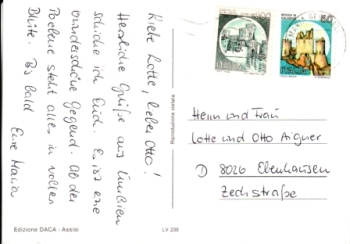 Liebe Lotte, lieber Otto!
Herzliche Grüße aus Umbrien
schicke ich Euch. Es ist eine
wunderschöne Gegend. Ab der
Poebene steht alles in vollen
Blüte. Bis bald
Eure Maria
Herrn und Frau
Lotte und Otto Aigner
D 8026 Ebenhausen
Zechstraße
Edizione DACA - Assisi
LV 238